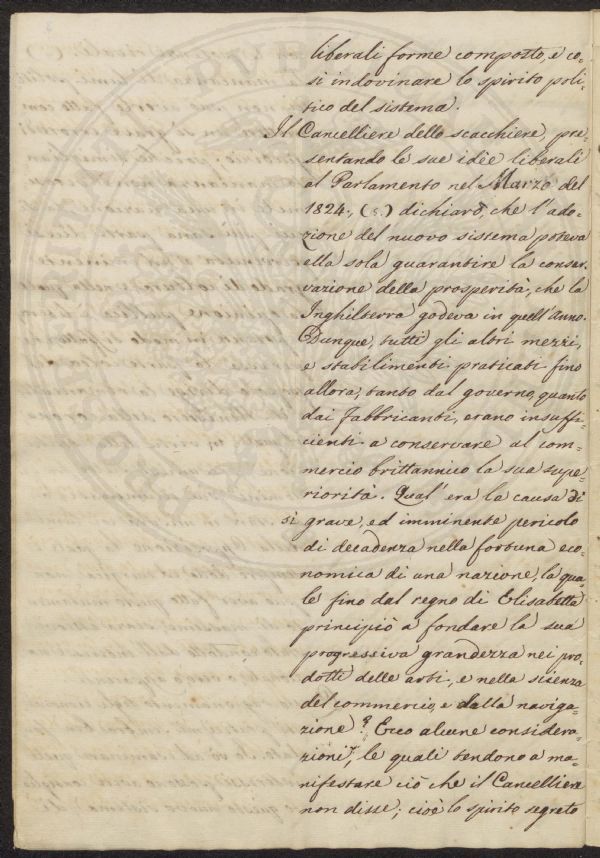 liberali forme composto, e co-
si indovinare lo spirito poli-
tico del sistema.
Il Cancelliere dello scacchiere, pre-
sentando le sue idèe liberali
al Parlamento nel Marzo del
1824., (5.) dichiarò, che l'ado-
zione del nuovo sistema poteva
ella sola guarantire la conser-
vazione della prosperità, che la
Inghilterra godeva in quell'anno.
Dunque, tutti gli altri mezzi,
e stabilimenti praticati fino
allora, tanto dal governo, quanto
dai fabbricanti, erano insuffi-
cienti a conservare al com-
mercio brittannico la sua supe-
riorità. Qual'era la causa di
sì grave, ed imminente pericolo
di decadenza nella fortuna eco-
nomica di una nazione, la qua-
le fino dal regno di Elisabetta
principiò a fondare la sua
progressiva grandezza nei pro-
dotti delle arti, e nella sicenza
del commercio, e dalla naviga-
zione? Ecco alcune considera-
zioni, le quali tendono a ma-
nifestare ciò che il Cancelliere
non disse; cioè lo spirito segreto